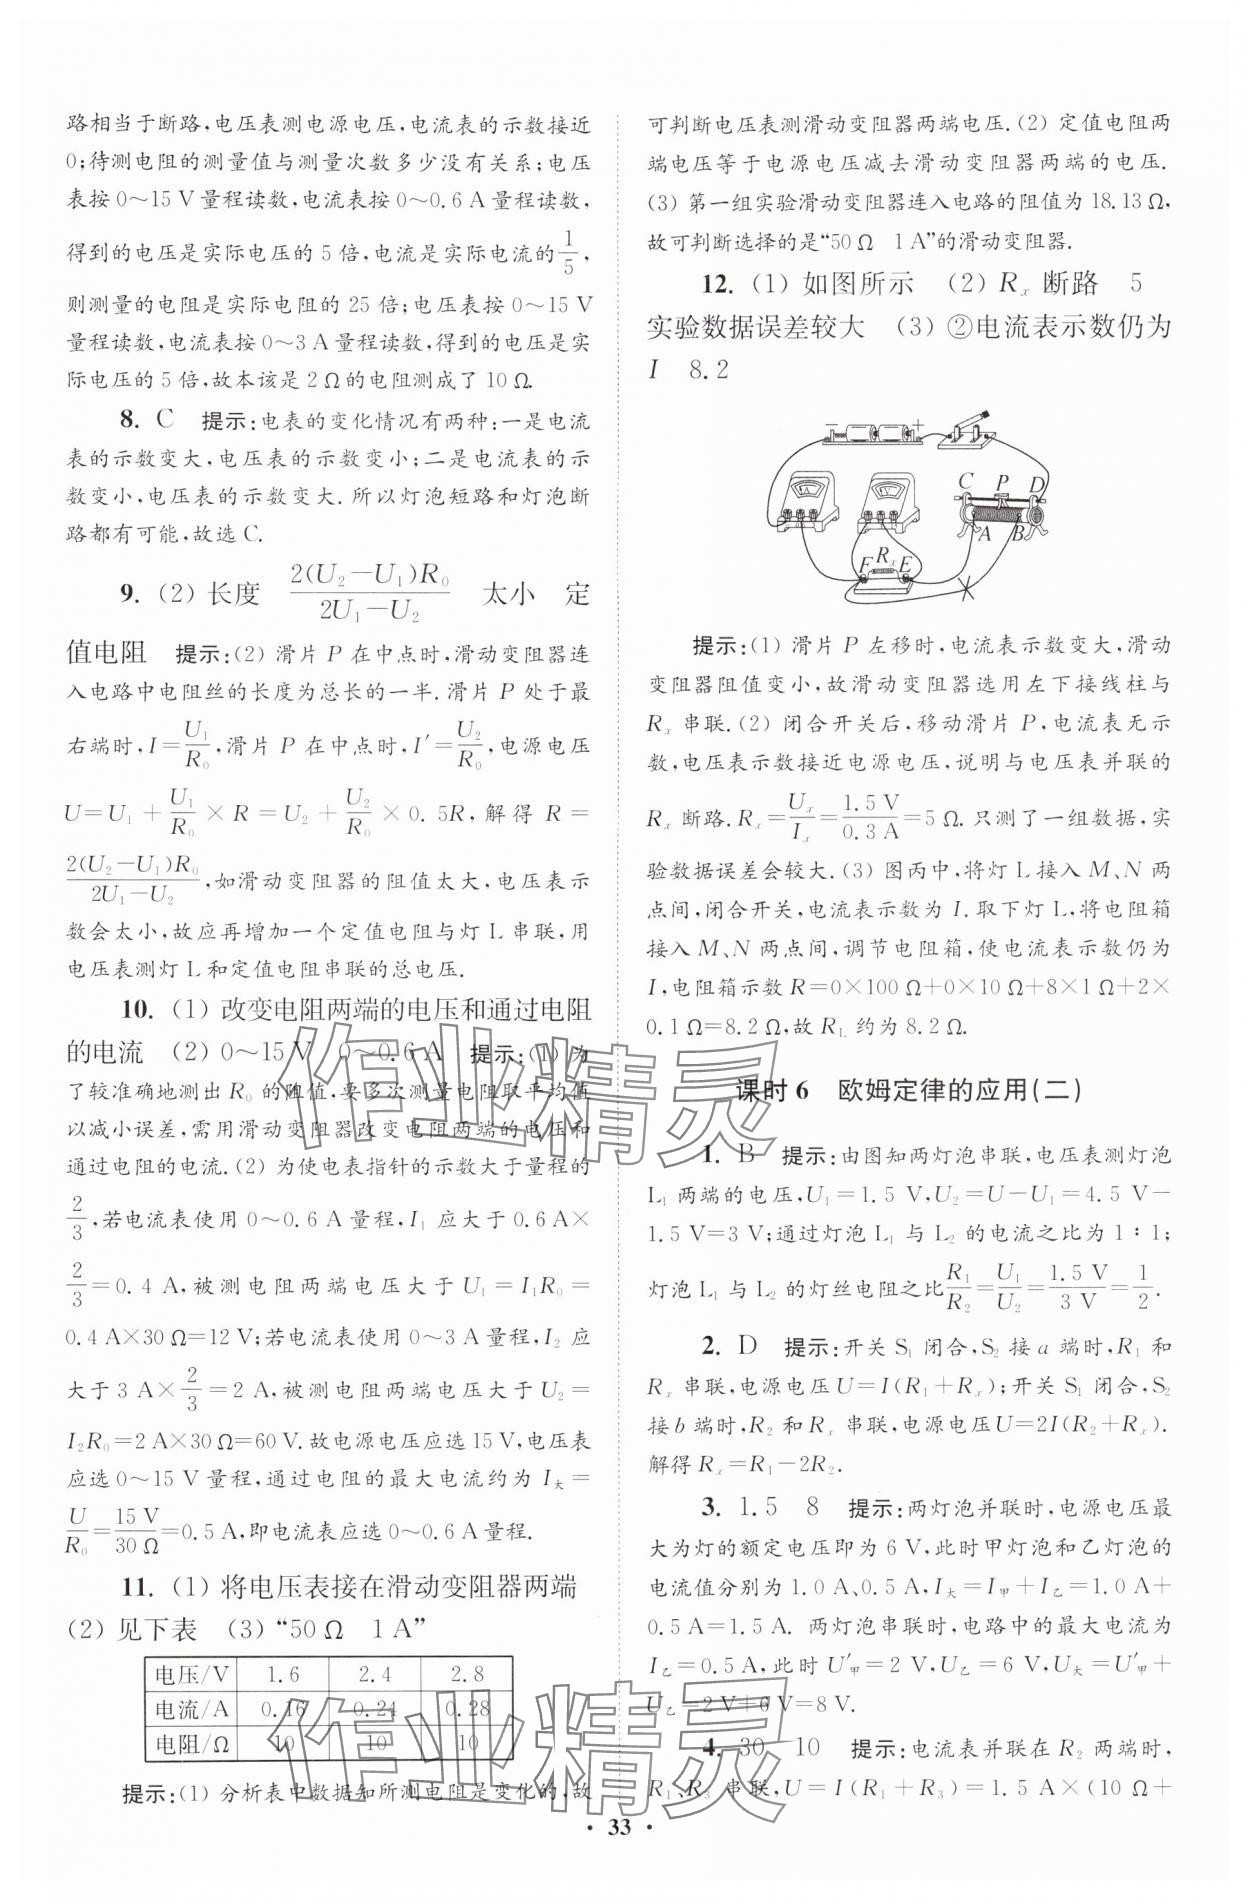 路相当于断路,电压表测电源电压,电流表的示数接近
0;待测电阻的测量值与测量次数多少没有关系;电压
表按 0～15 V 量程读数,电流表按 0～0.6 A 量程读数,
得到的电压是实际电压的 5 倍,电流是实际电流的1/5,
则测量的电阻是实际电阻的 25 倍;电压表按 0～15 V
量程读数,电流表按 0～3 A 量程读数,得到的电压是实
际电压的 5 倍,故本该是 2 Ω 的电阻测成了 10 Ω.
8. C 提示:电表的变化情况有两种:一是电流
表的示数变大,电压表的示数变小;二是电流表的示
数变小,电压表的示数变大.所以灯泡短路和灯泡断
路都有可能,故选 C.
9. (2) 长度 2(U₂−U₁)R₀/(2U₁−U₂) 太小 定
值电阻 提示:(2) 滑片 P 在中点时,滑动变阻器连
入电路中电阻丝的长度为总长的一半.滑片 P 处于最
右端时,I=U₁/R₀,滑片 P 在中点时,I′=U₂/R₀,电源电压
U=U₁+U₁/R₀×R=U₂+U₂/R₀×0.5R,解得 R=
2(U₂−U₁)R₀/(2U₁−U₂),如滑动变阻器的阻值太大,电压表示
数会太小,故应再增加一个定值电阻与灯 L 串联,用
电压表测灯 L 和定值电阻串联的总电压.
10. (1) 改变电阻两端的电压和通过电阻
的电流 (2) 0～15 V 0～0.6 A 提示:(1) 为
了较准确地测出 R₀ 的阻值,要多次测量电阻取平均值
以减小误差,需用滑动变阻器改变电阻两端的电压和
通过电阻的电流.(2) 为使电表指针的示数大于量程的
2/3,若电流表使用 0～0.6 A 量程,I₁ 应大于 0.6 A×
2/3=0.4 A,被测电阻两端电压大于 U₁=I₁R₀=
0.4 A×30 Ω=12 V;若电流表使用 0～3 A 量程,I₂ 应
大于 3 A×2/3=2 A,被测电阻两端电压大于 U₂=
I₂R₀=2 A×30 Ω=60 V.故电源电压应选 15 V,电压表
应选 0～15 V 量程,通过电阻的最大电流约为 I大=
U/R₀=15 V/30 Ω=0.5 A,即电流表应选 0～0.6 A 量程.
11. (1) 将电压表接在滑动变阻器两端
(2) 见下表 (3) “50 Ω 1 A”
电压/V 1.6 2.4 2.8
电流/A 0.16 0.24 0.28
电阻/Ω 10 10 10
提示:(1) 分析表中数据知所测电阻是变化的,故
可判断电压表测滑动变阻器两端电压.(2) 定值电阻两
端电压等于电源电压减去滑动变阻器两端的电压.
(3) 第一组实验滑动变阻器连入电路的阻值为 18.13 Ω,
故可判断选择的是“50 Ω 1 A”的滑动变阻器.
12. (1) 如图所示 (2) Rₓ 断路 5
实验数据误差较大 (3) ②电流表示数仍为
I 8.2
− +
C P D
A B
F Rₓ E
提示:(1) 滑片 P 左移时,电流表示数变大,滑动
变阻器阻值变小,故滑动变阻器选用左下接线柱与
Rₓ 串联.(2) 闭合开关后,移动滑片 P,电流表无示
数,电压表示数接近电源电压,说明与电压表并联的
Rₓ 断路.Rₓ=Uₓ/Iₓ=1.5 V/0.3 A=5 Ω.只测了一组数据,实
验数据误差会较大.(3) 图丙中,将灯 L 接入 M、N 两
点间,闭合开关,电流表示数为 I.取下灯 L,将电阻箱
接入 M、N 两点间,调节电阻箱,使电流表示数仍为
I,电阻箱示数 R=0×100 Ω+0×10 Ω+8×1 Ω+2×
0.1 Ω=8.2 Ω,故 R_L 约为 8.2 Ω.
课时 6 欧姆定律的应用(二)
1. B 提示:由图知两灯泡串联,电压表测灯泡
L₁ 两端的电压,U₁=1.5 V,U₂=U−U₁=4.5 V−
1.5 V=3 V;通过灯泡 L₁ 与 L₂ 的电流之比为 1∶1;
灯泡 L₁ 与 L₂ 的灯丝电阻之比R₁/R₂=U₁/U₂=1.5 V/3 V=1/2.
2. D 提示:开关 S₁ 闭合,S₂ 接 a 端时,R₁ 和
Rₓ 串联,电源电压 U=I(R₁+Rₓ);开关 S₁ 闭合,S₂
接 b 端时,R₂ 和 Rₓ 串联,电源电压U=2I(R₂+Rₓ).
解得 Rₓ=R₁−2R₂.
3. 1.5 8 提示:两灯泡并联时,电源电压最
大为灯的额定电压即为 6 V,此时甲灯泡和乙灯泡的
电流值分别为 1.0 A、0.5 A,I大=I甲+I乙=1.0 A+
0.5 A=1.5 A. 两灯泡串联时,电路中的最大电流为
I乙=0.5 A,此时 U′甲=2 V,U乙=6 V,U大=U′甲+
U乙=2 V+6 V=8 V.
4. 30 10 提示:电流表并联在 R₂ 两端时,
R₁、R₃ 串联,U=I(R₁+R₃)=1.5 A×(10 Ω+
• 33 •
作业精灵
作业精灵